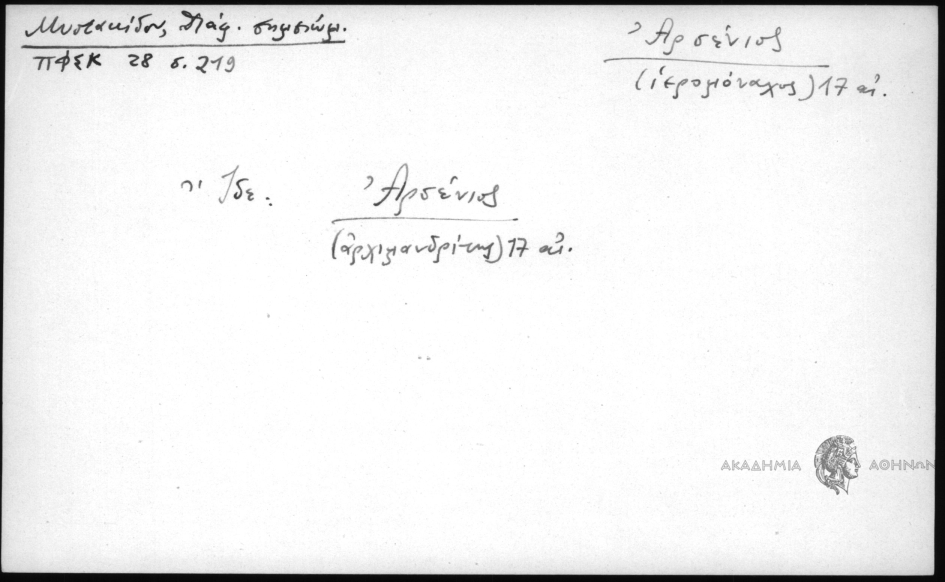 Μυστακίδου, Διάφ. σημειώμ.
ΠΦΣΚ 28 σ. 219
Ἀρσένιος
(ἱερομόναχος) 17 αἰ.
Ἴδε: Ἀρσένιος
(ἀρχιμανδρίτης) 17 αἰ.
ΑΚΑΔΗΜΙΑ ΑΘΗΝΩΝ